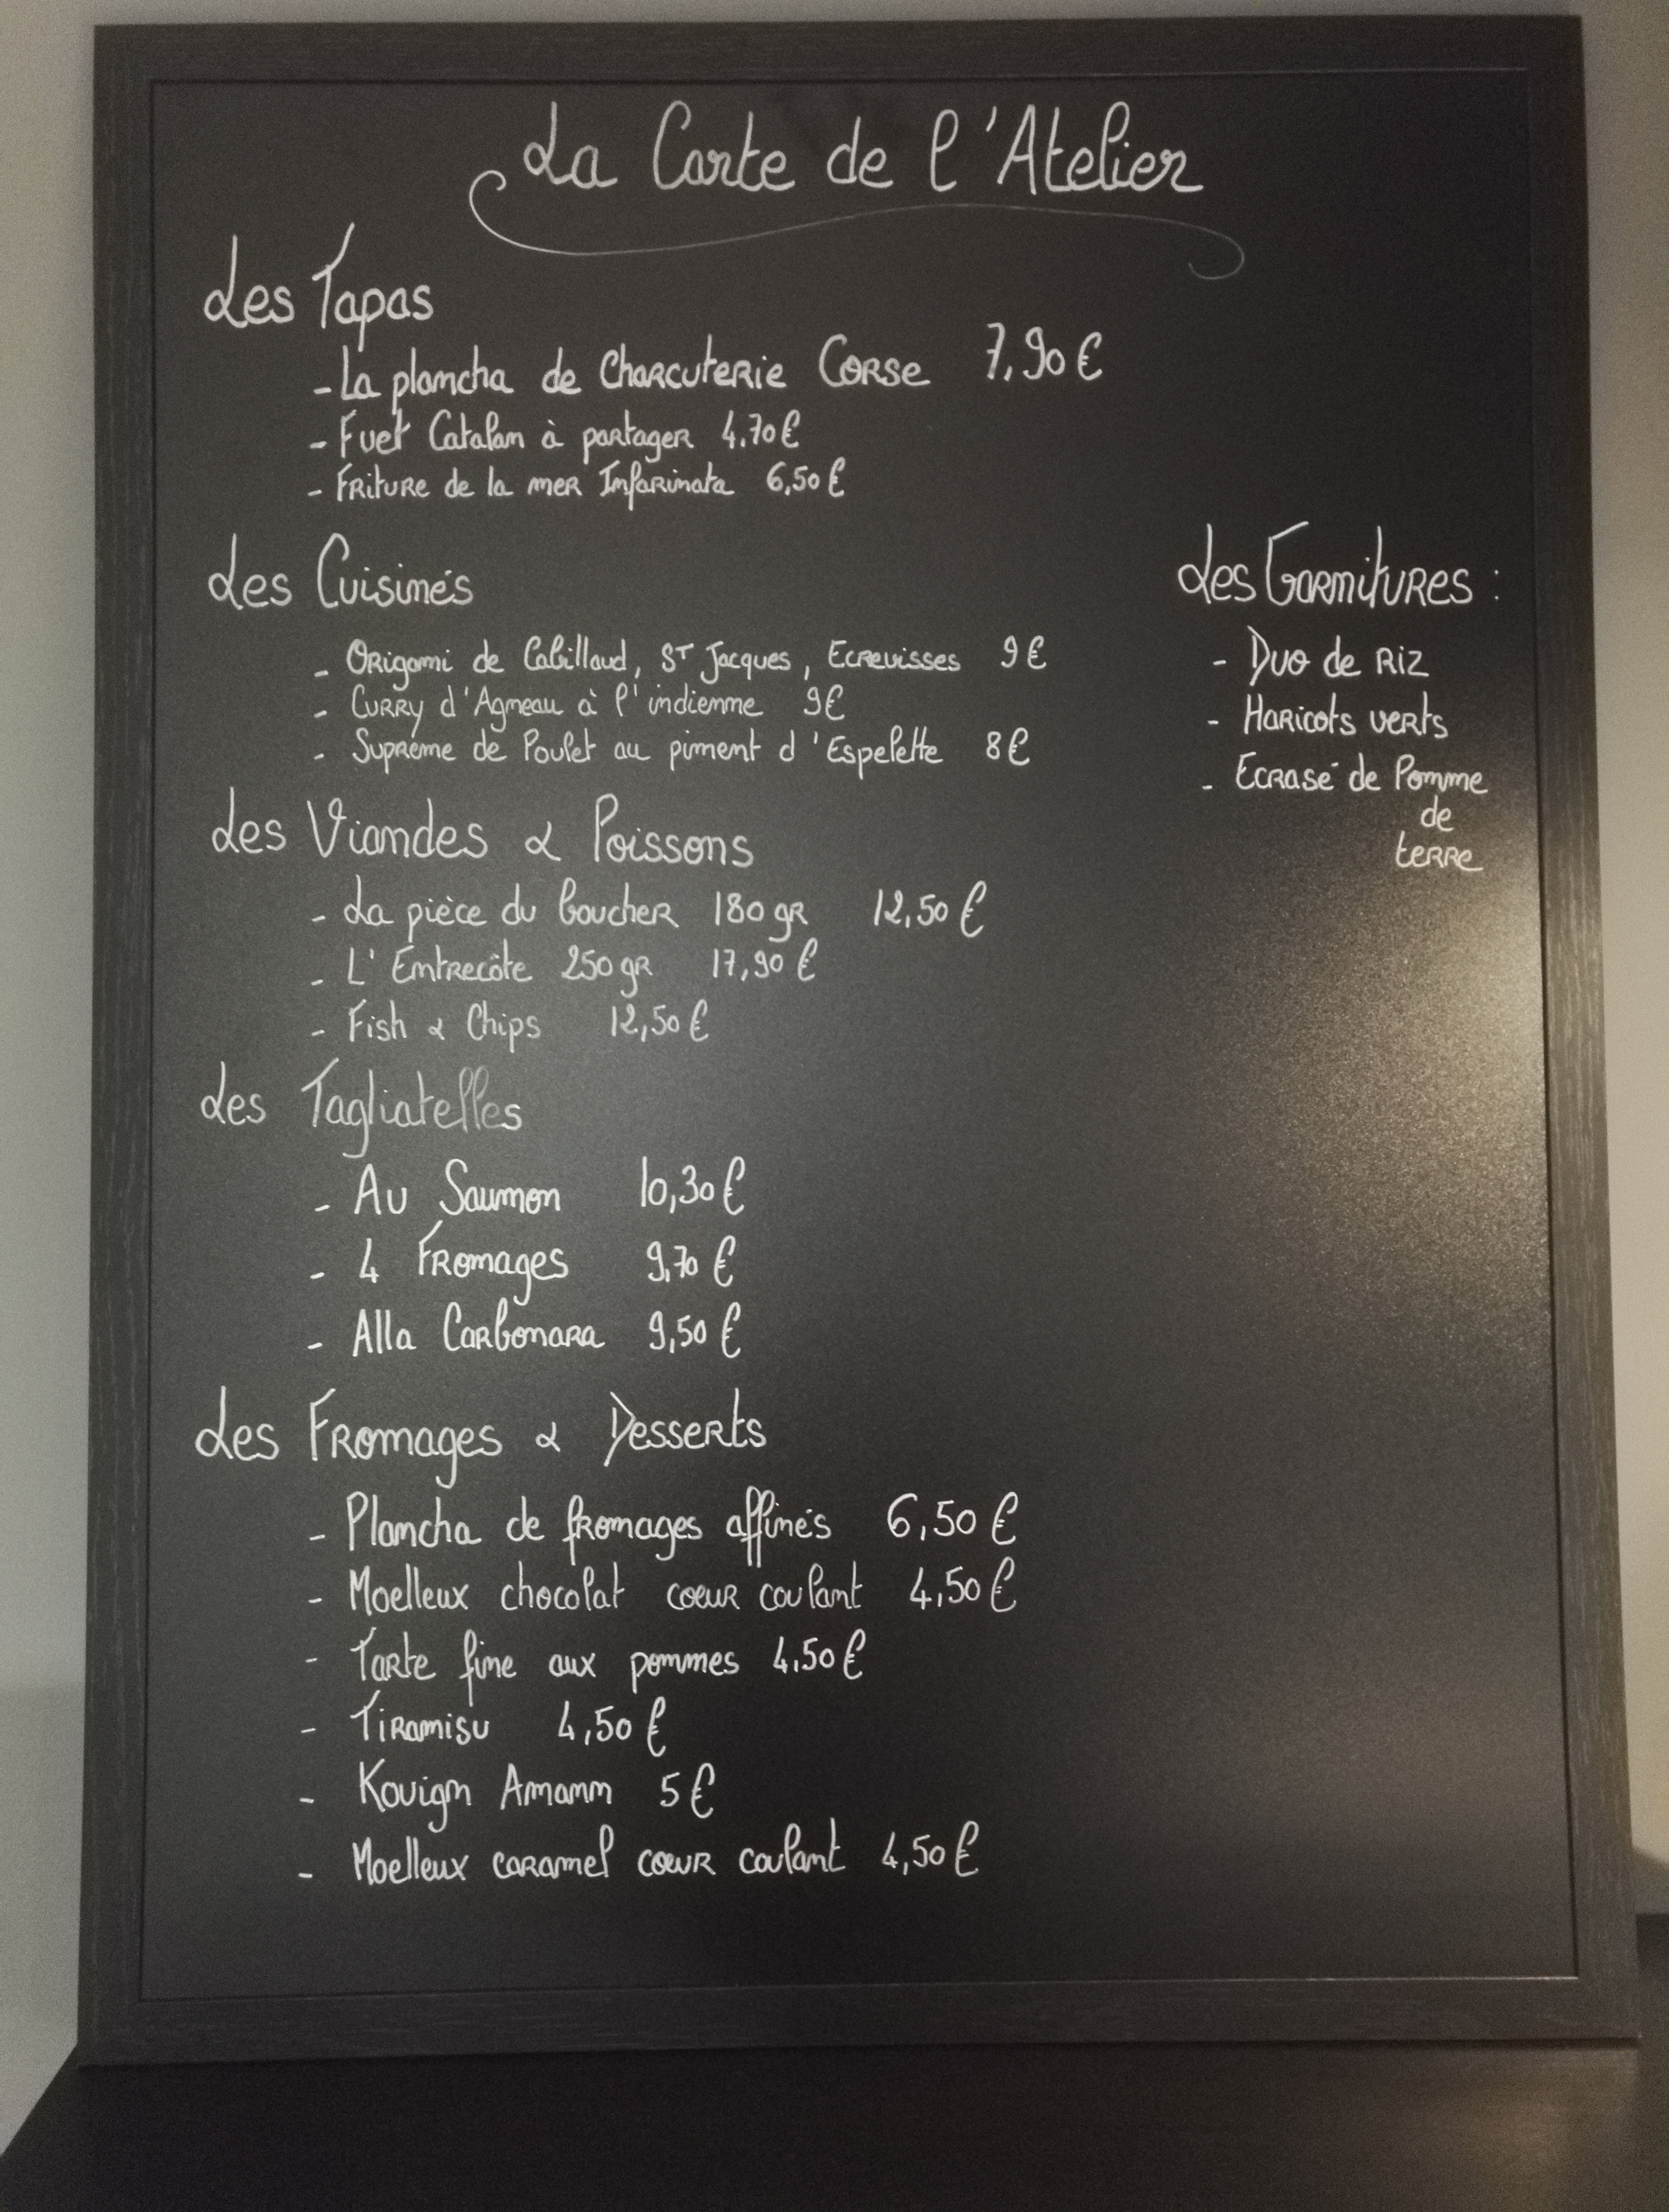 La Carte de l'Atelier
Les Tapas
- La plancha de Charcuterie Corse 7,90€
- Fuet Catalan à partager 4.70€
- Friture de la mer Infarinata 6,50€
Les Cuisinés
- Origami de Cabillaud, St Jacques, Ecrevisses 9€
- Curry d'Agneau à l'indienne 9€
- Suprême de Poulet au piment d'Espelette 8€
Les Garnitures :
- Duo de Riz
- Haricots verts
- Ecrasé de Pomme
de
terre
Les Viandes & Poissons
- La pièce du boucher 180 gr 12,50€
- L'Entrecôte 250 gr 17,90€
- Fish & Chips 12,50€
Les Tagliatelles
- Au Saumon 10,30€
- 4 Fromages 9,70€
- Alla Carbonara 9,50€
Les Fromages & Desserts
- Plancha de fromages affinés 6,50€
- Moelleux chocolat coeur coulant 4,50€
- Tarte fine aux pommes 4,50€
- Tiramisu 4,50€
- Kouign Amann 5€
- Moelleux caramel coeur coulant 4,50€